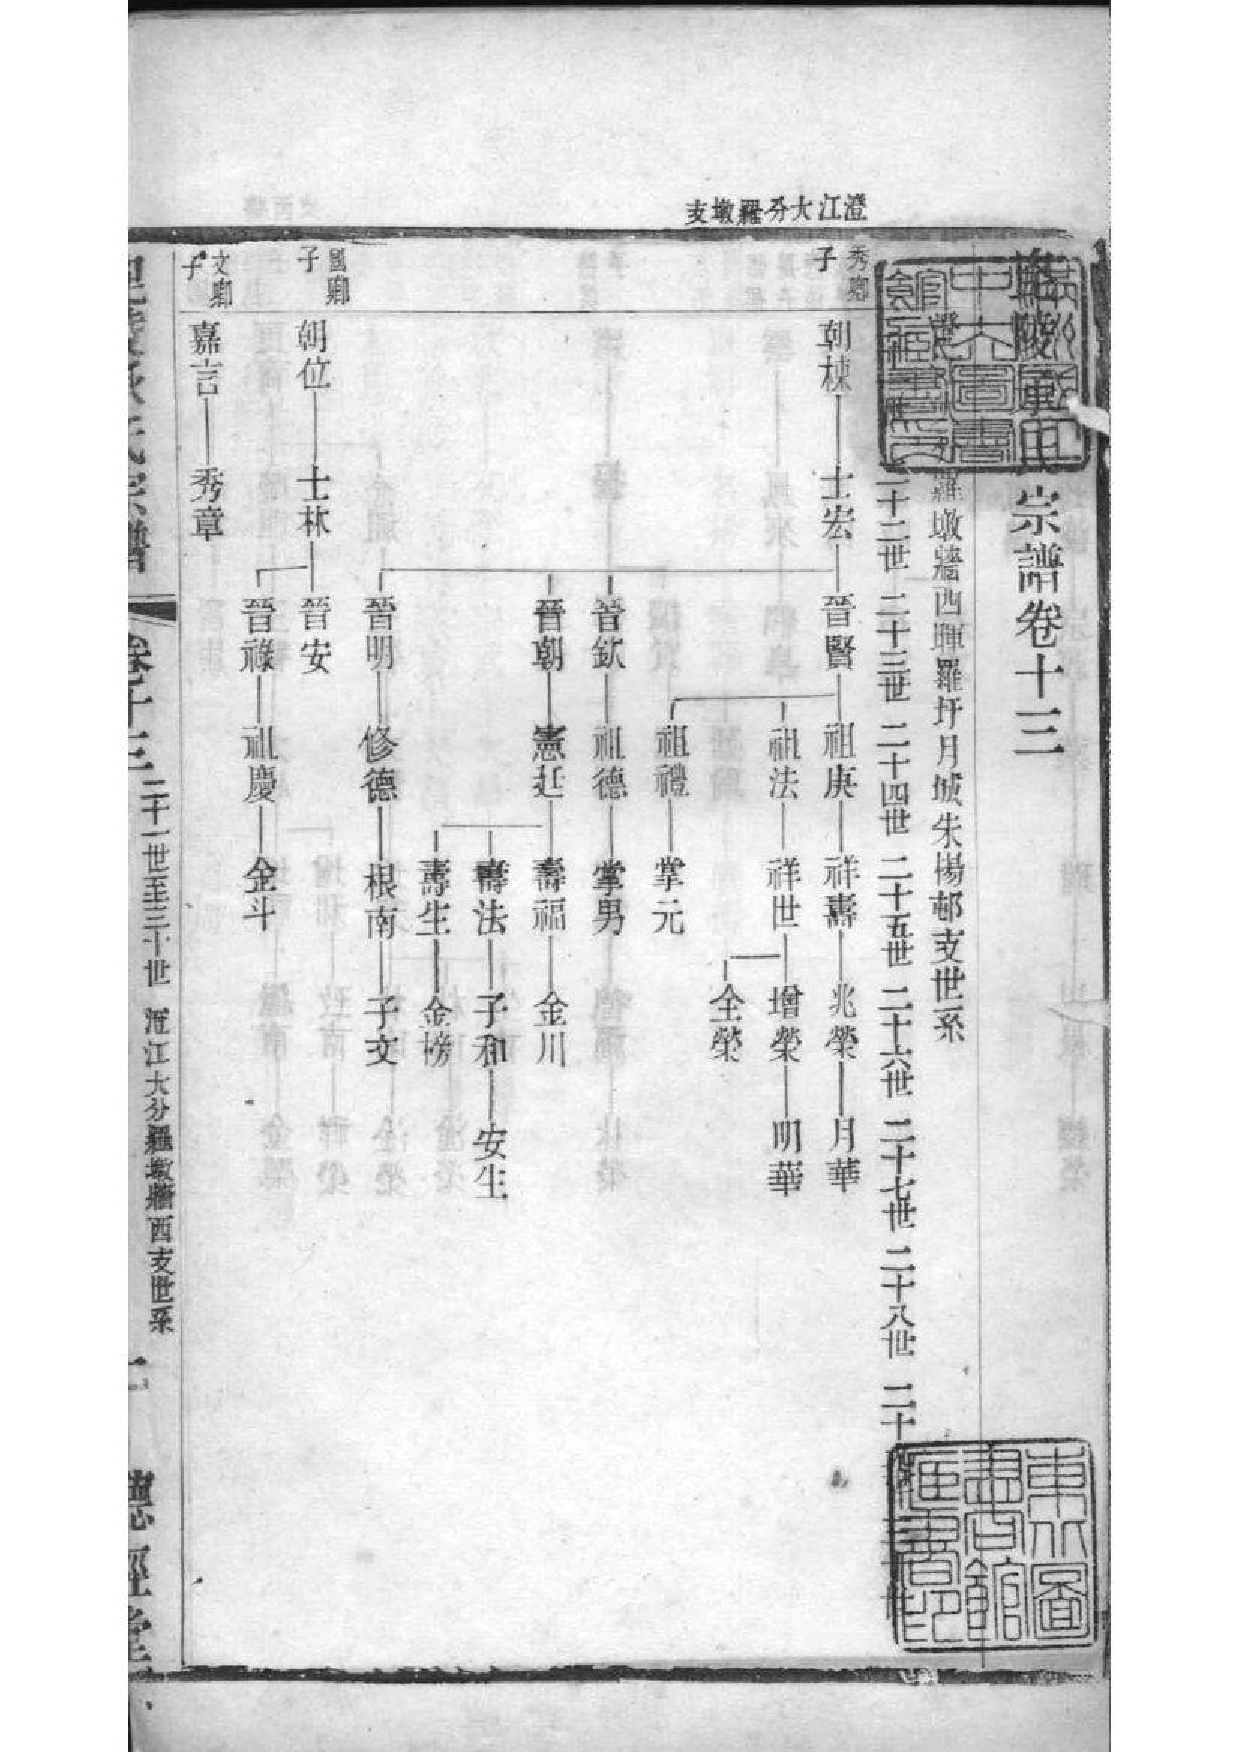 澄江大分羅墩支
毗陵承氏宗譜卷十三
羅墩牆西暉羅圩月城朱楊邨支世系
二十二世 二十三世 二十四世 二十五世 二十六世 二十七世 二十八世 二十
秀卿子
朝棟 士宏 晉賢 祖庚 祥壽 兆榮 月華
祖法 祥世 增榮 明華
全榮
祖禮 掌元
晉欽 祖德 掌男
晉朝 憲廷 壽福 金川
壽法 子和 安生
壽生 金榜
晉明 修德 根南 子文
國卿子
朝位 士林 晉安
晉祿 祖慶 金斗
文卿子
嘉言 秀章
毗陵承氏宗譜 卷十三 二十一世至三十世 澄江大分羅墩牆西支世系 一 德經堂
東北圖書館藏書印